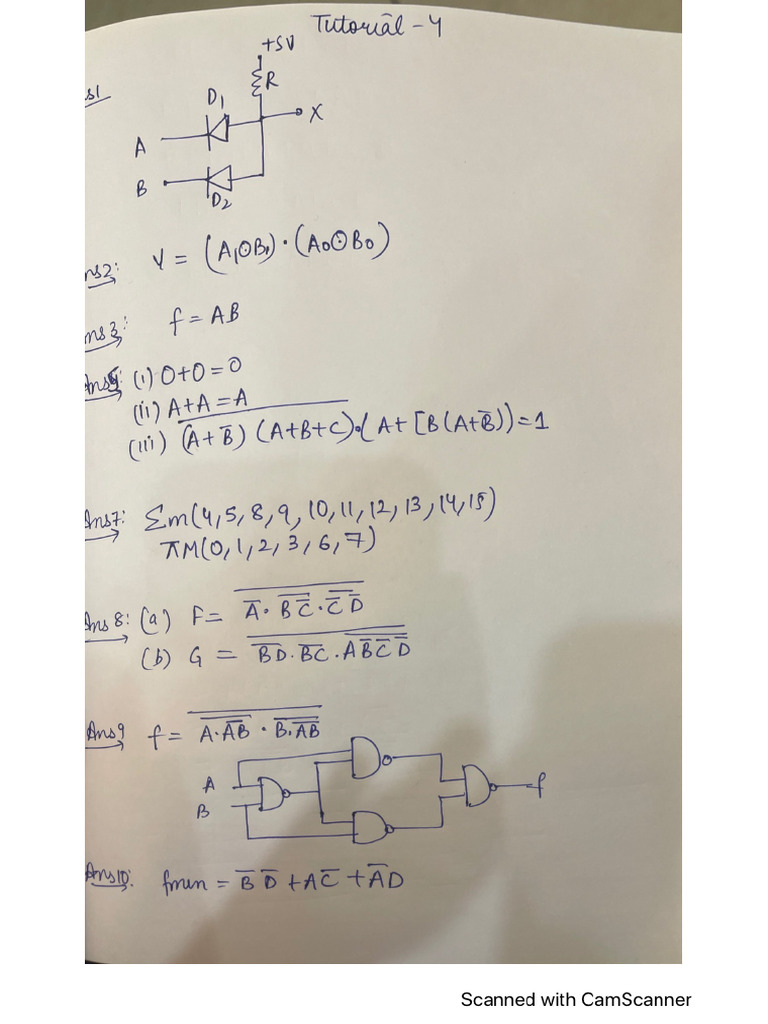 Tutorial - 4
+5V
s1
R
D1
X
A
B
D2
ns2: Y = (A1⊙B1)·(A0⊙B0)
ns3: f = AB
Ans: (i) 0+0=0
(ii) A+A=A
(iii) \overline{(A+B̅)(A+B+C)}·(A+[B(A+B̅))=1
Ans7: Σm(4,5,8,9,10,11,12,13,14,15)
πM(0,1,2,3,6,7)
Ans 8: (a) F= \overline{\overline{A}·\overline{B\overline{C}}·\overline{\overline{C}\,\overline{D}}}
(b) G = \overline{\overline{BD}·\overline{BC}·\overline{A\overline{B}\,\overline{C}\,\overline{D}}}
Ans9 f= \overline{\overline{A·\overline{AB}}·\overline{B·\overline{AB}}}
A
B
f
Ans10: fmin = B̅ D̅ + AC̅ + A̅D
Scanned with CamScanner